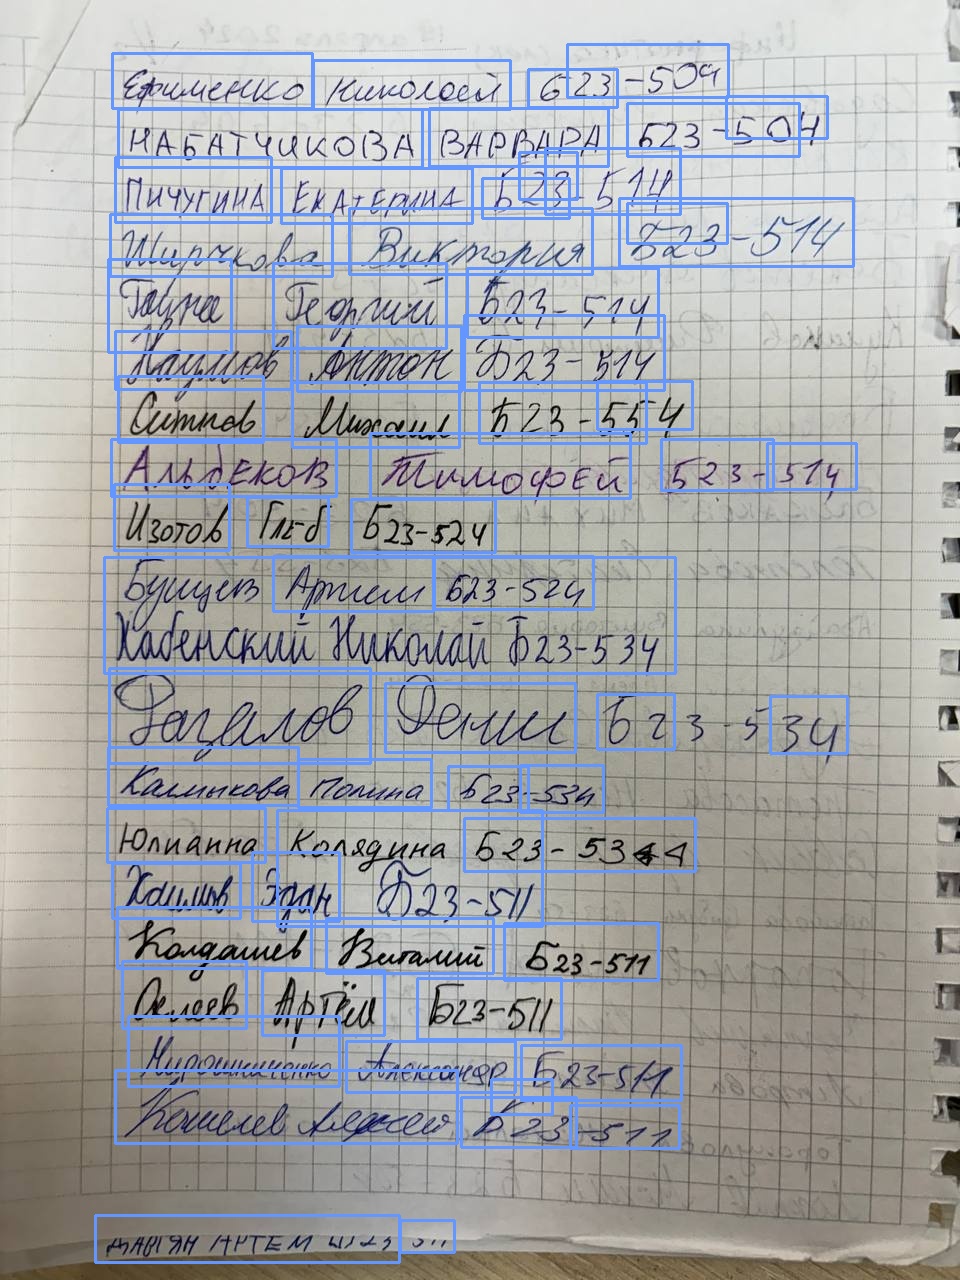 Ефименко Николай Б23-504
НАБАТЧИКОВА ВАРВАРА Б23-504
ПИЧУГИНА ЕКАТЕРИНА Б23-514
Ширчкова Виктория Б23-514
Гауна Георгий Б23-514
Наумов Антон Б23-514
Ситнов Михаил Б23-554
Альбеков Тимофей Б23-514
Изотов Глеб Б23-524
Бущев Артем Б23-524
Хабенский Николай Б23-534
Рагалов Денис Б23-534
Калмыкова Полина Б23-534
Юлианна Колядина Б23-534
Хаимов Эдан Б23-511
Колдашев Виталий Б23-511
Артём Б23-511
Мирошниченко Александр Б23-511
Кошелев Алексей Б23-511
АРТЕМ